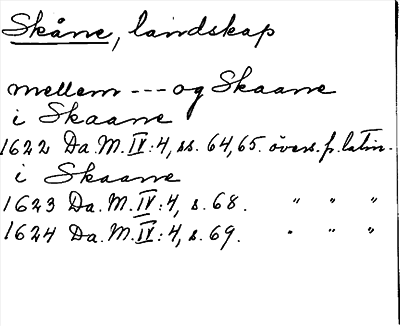 Skåne, landskap
mellem --- og Skaane
i Skaane
1622 Da.M.IV:4, ss. 64,65. övers. fr. latin.
i Skaane
1623 Da.M.IV:4, s. 68. " " "
1624 Da.M.IV:4, s. 69. " " "